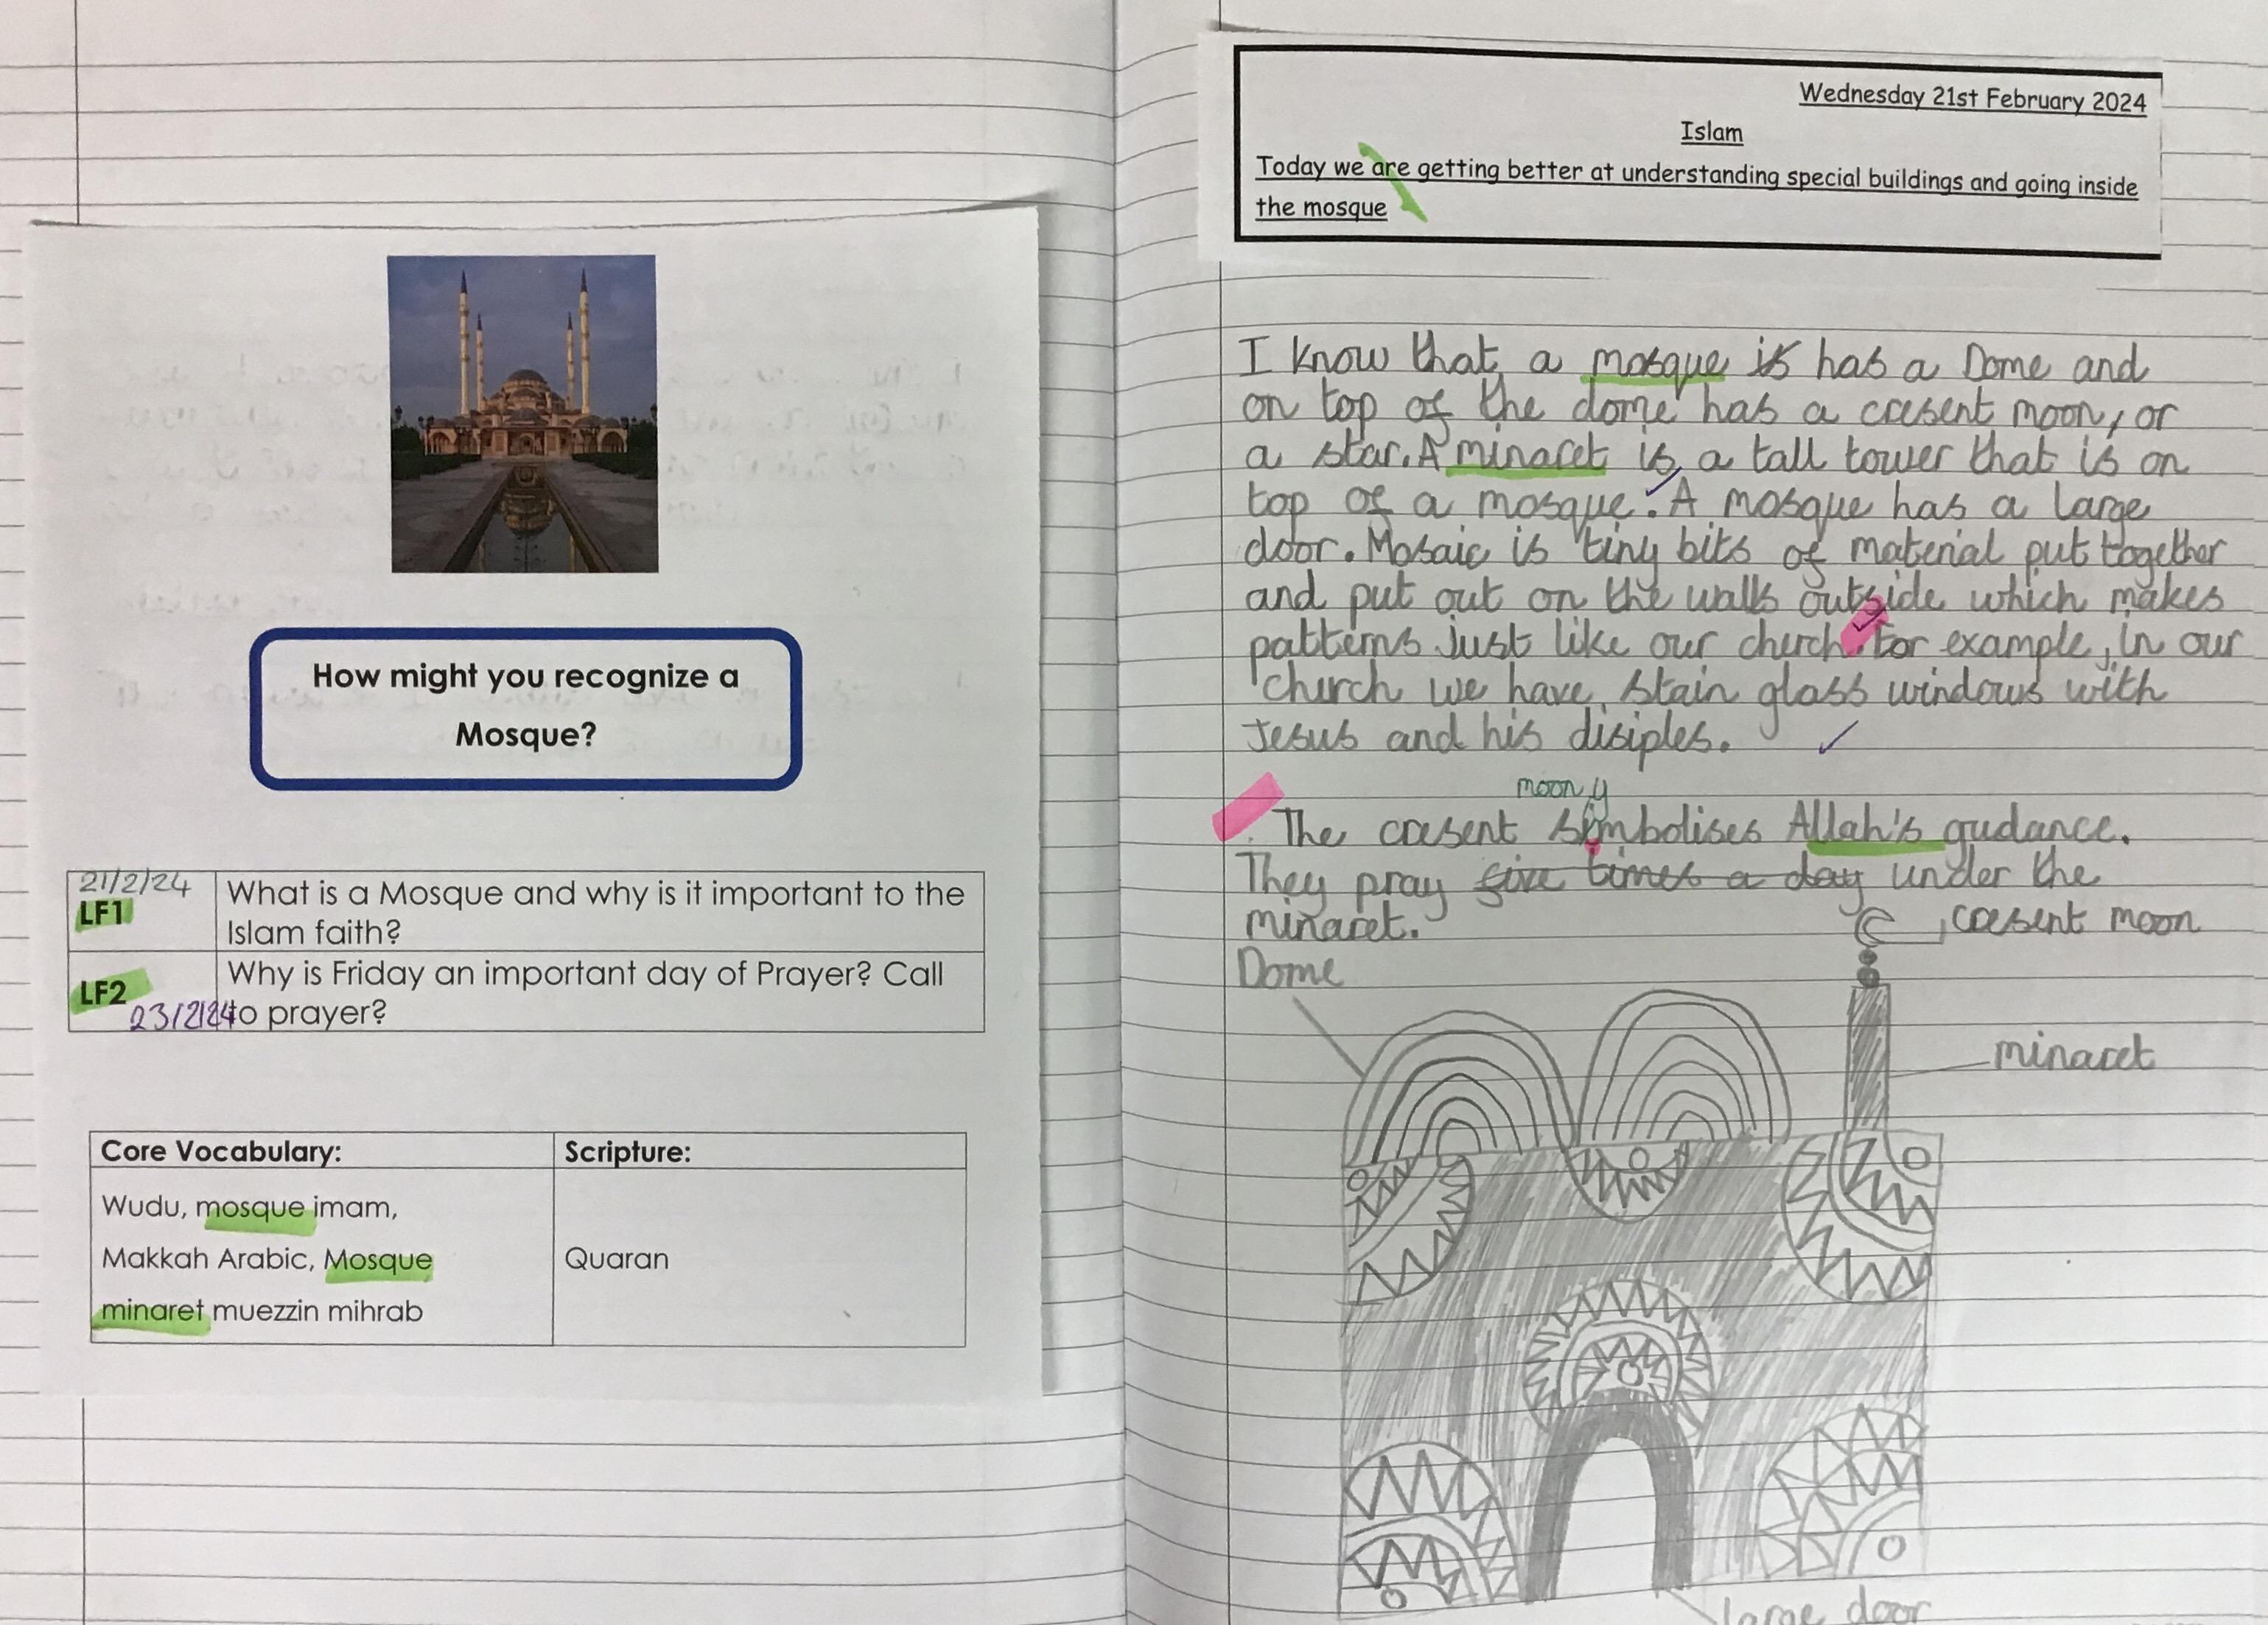 How might you recognize a
Mosque?
21/2/24
LF1
What is a Mosque and why is it important to the
Islam faith?
LF2
23/2/24
Why is Friday an important day of Prayer? Call
to prayer?
Core Vocabulary:
Scripture:
Wudu, mosque imam,
Makkah Arabic, Mosque
minaret muezzin mihrab
Quaran
Wednesday 21st February 2024
Islam
Today we are getting better at understanding special buildings and going inside
the mosque
I know that a mosque is has a Dome and
on top of the dome has a cresent moon, or
a star. A minaret is a tall tower that is on
top of a mosque. A mosque has a large
door. Mosaic is tiny bits of material put together
and put out on the walls outside which makes
patterns just like our cherch. For example, in our
church we have stain glass windows with
Jesus and his disiples.
moon y
The cresent simbolises Allah's gudance.
They pray five times a day under the
minaret.
cresent moon
Dome
minaret
large door